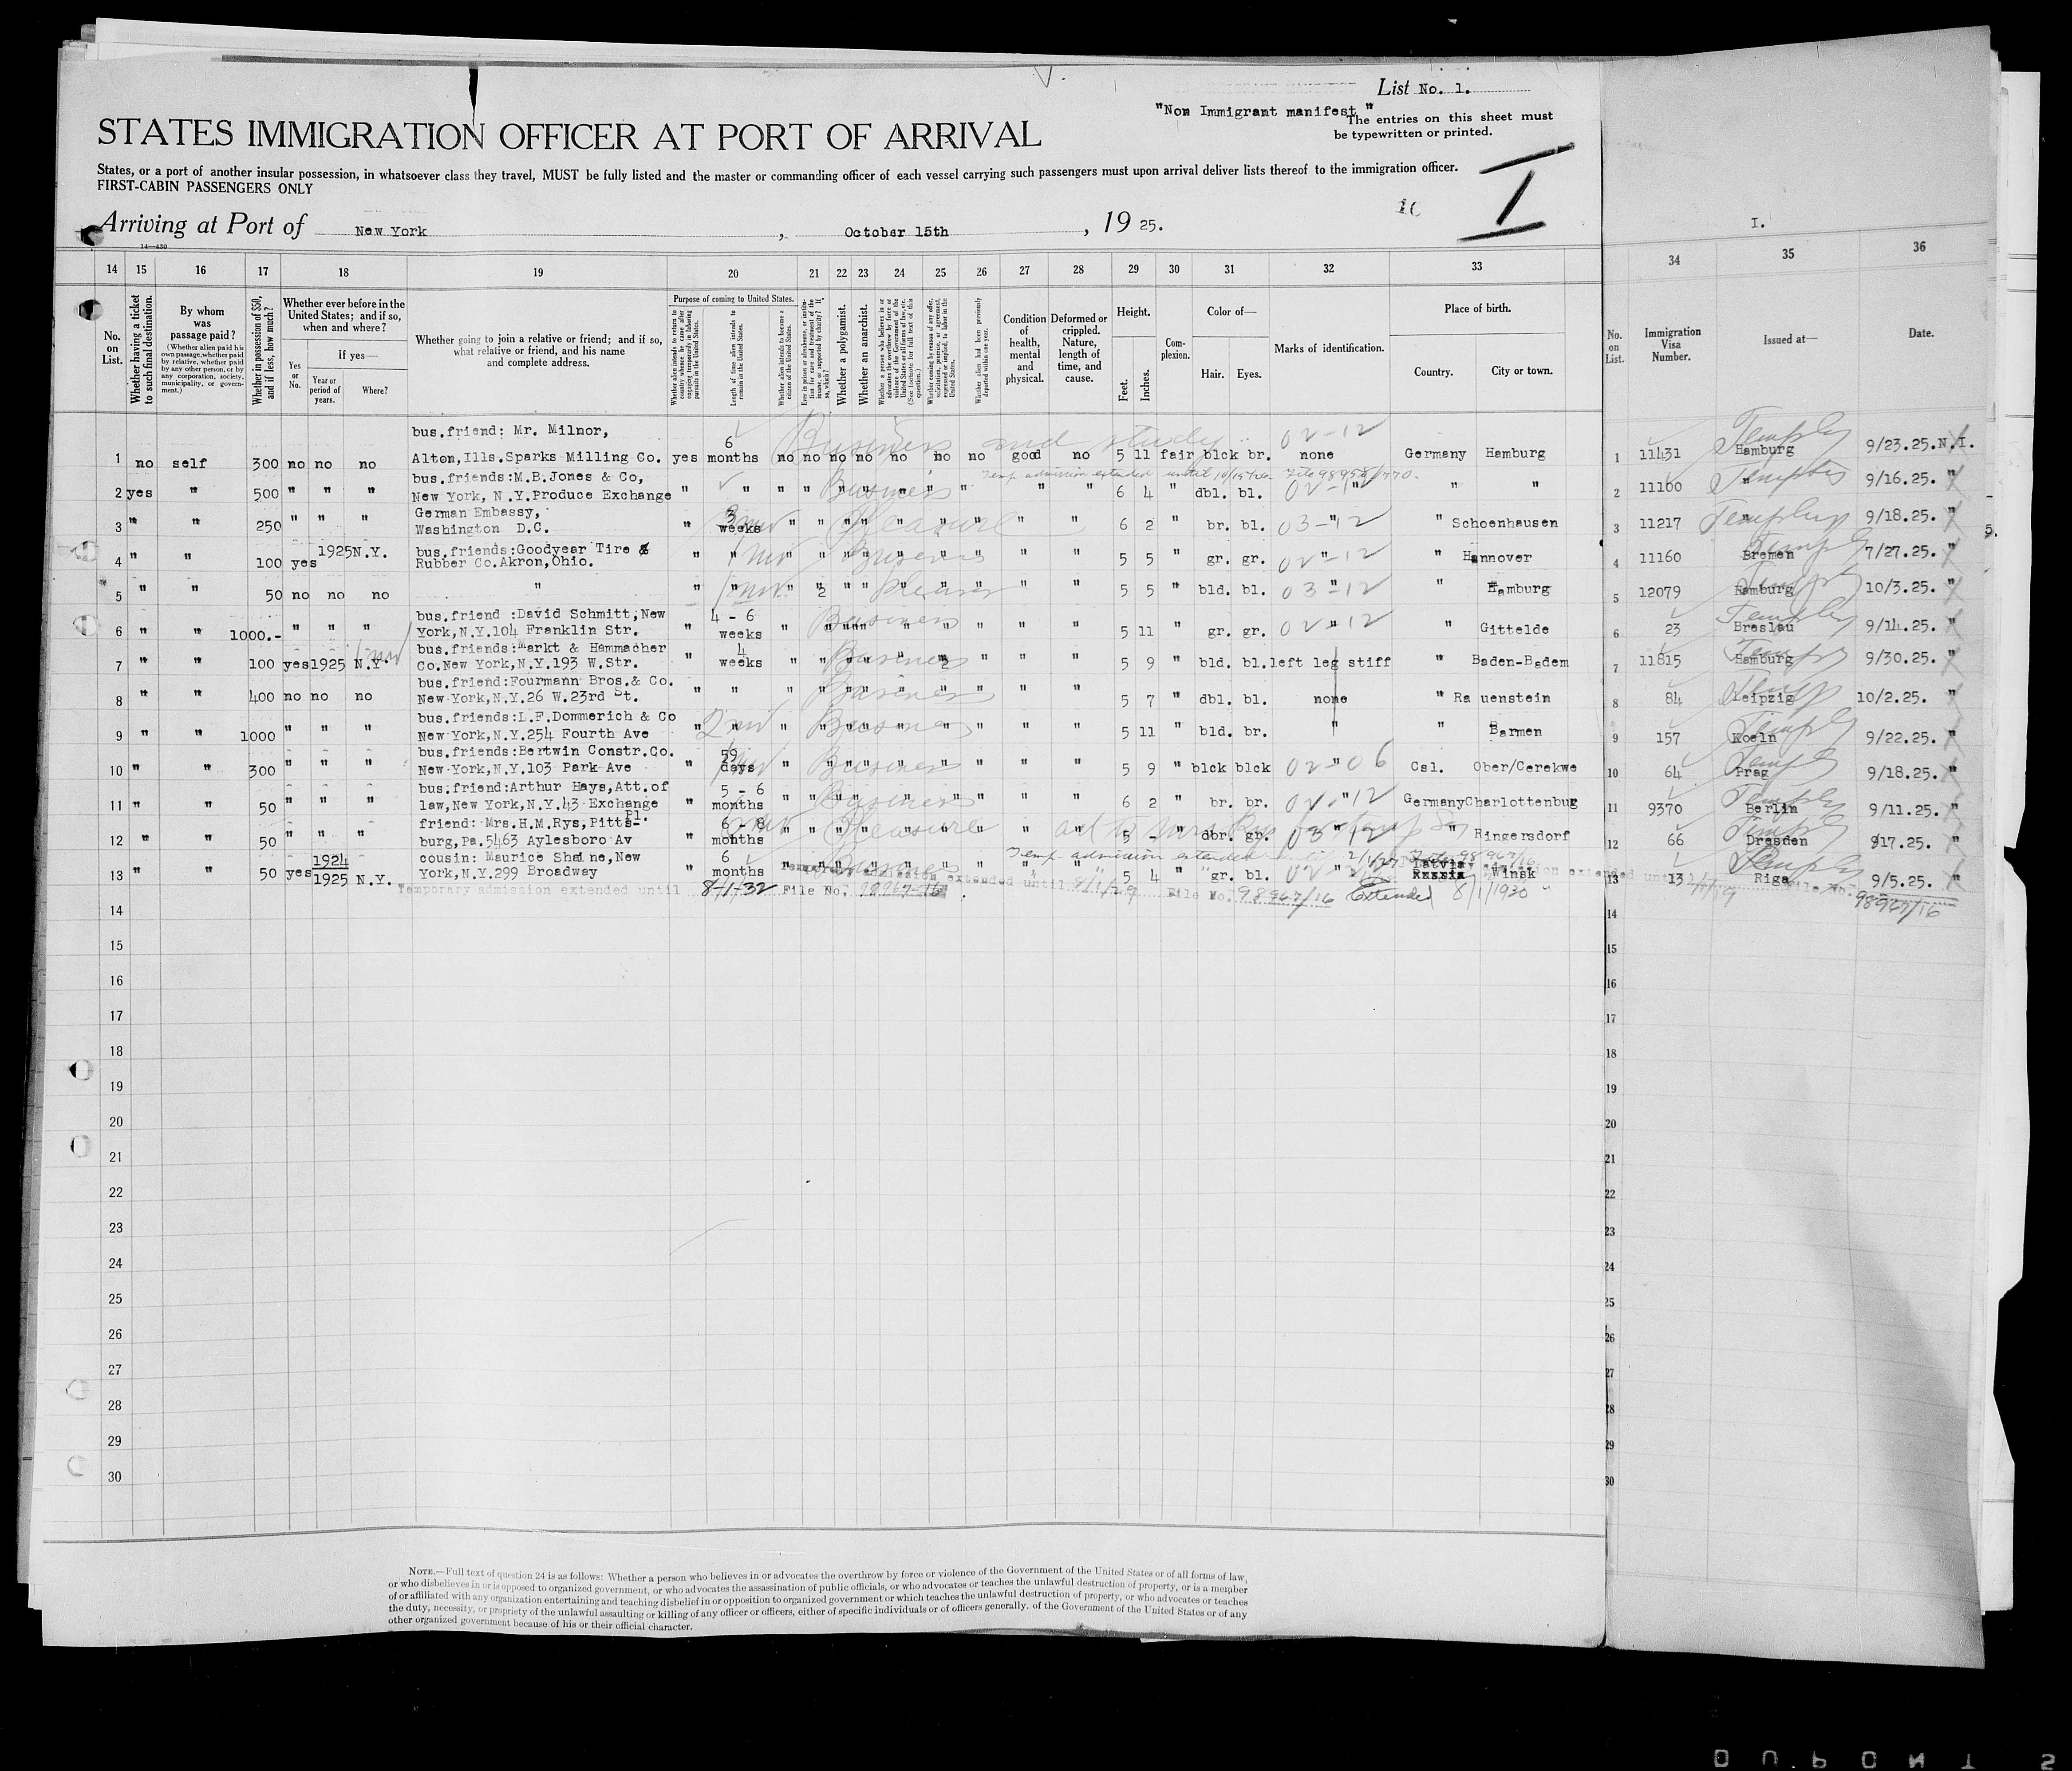 List No. 1.
"Non Immigrant manifest"
The entries on this sheet must
be typewritten or printed.
STATES IMMIGRATION OFFICER AT PORT OF ARRIVAL
States, or a port of another insular possession, in whatsoever class they travel, MUST be fully listed and the master or commanding officer of each vessel carrying such passengers must upon arrival deliver lists thereof to the immigration officer.
FIRST-CABIN PASSENGERS ONLY
I
Arriving at Port of New York, October 15th, 19 25.
I.
14 15 16 17 18 19 20 21 22 23 24 25 26 27 28 29 30 31 32 33 34 35 36
No. on List.
Whether having a ticket to such final destination.
By whom was passage paid?
(Whether alien paid his own passage, whether paid by relative, whether paid by any other person, or by any corporation, society, municipality, or government.)
Whether in possession of $50, and if less, how much?
Whether ever before in the United States; and if so, when and where?
Yes or No.
If yes—
Year or period of years.
Where?
Whether going to join a relative or friend; and if so, what relative or friend, and his name and complete address.
Purpose of coming to United States.
Length of time alien intends to remain in the United States.
Whether alien intends to become a citizen of the United States.
Whether a polygamist.
Whether an anarchist.
Condition of health, mental and physical.
Deformed or crippled. Nature, length of time, and cause.
Height.
Feet.
Inches.
Complexion.
Color of—
Hair.
Eyes.
Marks of identification.
Place of birth.
Country.
City or town.
No. on List.
Immigration Visa Number.
Issued at—
Date.
bus.friend: Mr. Milnor,
1 no self 300 no no no Alton,Ills.Sparks Milling Co. yes 6 months no no no no no no no good no 5 11 fair blck br. none Germany Hamburg 1 11431 Hamburg 9/23.25.N.I.
Business and study 02-12
bus.friends:M.B.Jones & Co,
2 yes " 500 " " " New York, N.Y.Produce Exchange " " " " " " " " " " " " 6 4 " dbl. bl. " " " 2 11100 " 9/16.25. "
Business
German Embassy,
3 " " 250 " " " Washington D.C. " 3 weeks " " " " " " " " " 6 2 " br. bl. " " Schoenhausen 3 11217 " 9/18.25. "
Pleasure 03-12
4 " " 100 yes 1925 N.Y. bus.friends:Goodyear Tire &
Rubber Co.Akron,Ohio. " " " " " " " " " " " 5 5 " gr. gr. " " Hannover 4 11160 Bremen 7/27.25. "
Business 02-12
5 " " 50 no no no " " " " " " " " " " " " 5 5 " bld. bl. " " Hamburg 5 12079 Hamburg 10/3.25. "
03-12
bus.friend :David Schmitt,New
6 " " 1000.- " " " York,N.Y.104 Franklin Str. " 4 - 6 weeks " " " " " " " " " 5 11 " gr. gr. " " Gittelde 6 23 Breslau 9/14.25. "
Business 02-12
bus.friends:Markt & Hammacher
7 " " 100 yes 1925 N.Y. Co.New York,N.Y.193 W.Str. " 4 weeks " " " " " " " " " 5 9 " bld. bl. left leg stiff " Baden-Badem 7 11815 Hamburg 9/30.25. "
Business
bus.friend:Fourmann Bros.& Co.
8 " " 400 no no no New York,N.Y.26 W.23rd St. " " " " " " " " " " " 5 7 " dbl. bl. none " Rauenstein 8 84 Leipzig 10/2.25. "
Business
bus.friends:L.F.Dommerich & Co
9 " " 1000 " " " New York,N.Y.254 Fourth Ave " " " " " " " " " " " 5 11 " bld. br. " " Barmen 9 157 Koeln 9/22.25. "
Business
bus.friends:Bertwin Constr.Co.
10 " " 300 " " " New York,N.Y.103 Park Ave " 59 days " " " " " " " " " 5 9 " blck blck " Csl. Ober/Cerekwe 10 64 Prag 9/18.25. "
Business 02-06
bus.friend:Arthur Hays,Att.of
11 " " 50 " " " law,New York,N.Y.43 Exchange Pl. " 5 - 6 months " " " " " " " " " 6 2 " br. br. " Germany Charlottenbug 11 9370 Berlin 9/11.25. "
Business 02-12
friend: Mrs.H.M.Rys,Pitts-
12 " " 50 " " " burg,Pa.5463 Aylesboro Av " 6 - 8 months " " " " " " " " " 5 - " dbr. gb. " " Ringersdorf 12 66 Dresden 917.25. "
Pleasure 03-12
cousin: Maurice Shaine,New
13 " " 50 yes 1924 1925 N.Y. York,N.Y.299 Broadway " 6 months " " " " " " " " " 5 4 " gr. bl. " Latvia Winsk 13 13 Riga 9/5.25. "
Temp admission extended until
Temporary admission extended until 8-1-32 File No. 98967-16
extended until 8/1/29 File No. 98967/16 Extended 8/1/1930
File No. 98967/16
14 14
15 15
16 16
17 17
18 18
19 19
20 20
21 21
22 22
23 23
24 24
25 25
26 26
27 27
28 28
29 29
30 30
NOTE.—Full text of question 24 is as follows: Whether a person who believes in or advocates the overthrow by force or violence of the Government of the United States or of all forms of law,
or who disbelieves in or is opposed to organized government, or who advocates the assassination of public officials, or who advocates or teaches the unlawful destruction of property, or is a member
of or affiliated with any organization entertaining and teaching disbelief in or opposition to organized government or which teaches the unlawful destruction of property, or who advocates or teaches
the duty, necessity, or propriety of the unlawful assaulting or killing of any officer or officers, either of specific individuals or of officers generally, of the Government of the United States or of any
other organized government because of his or their official character.